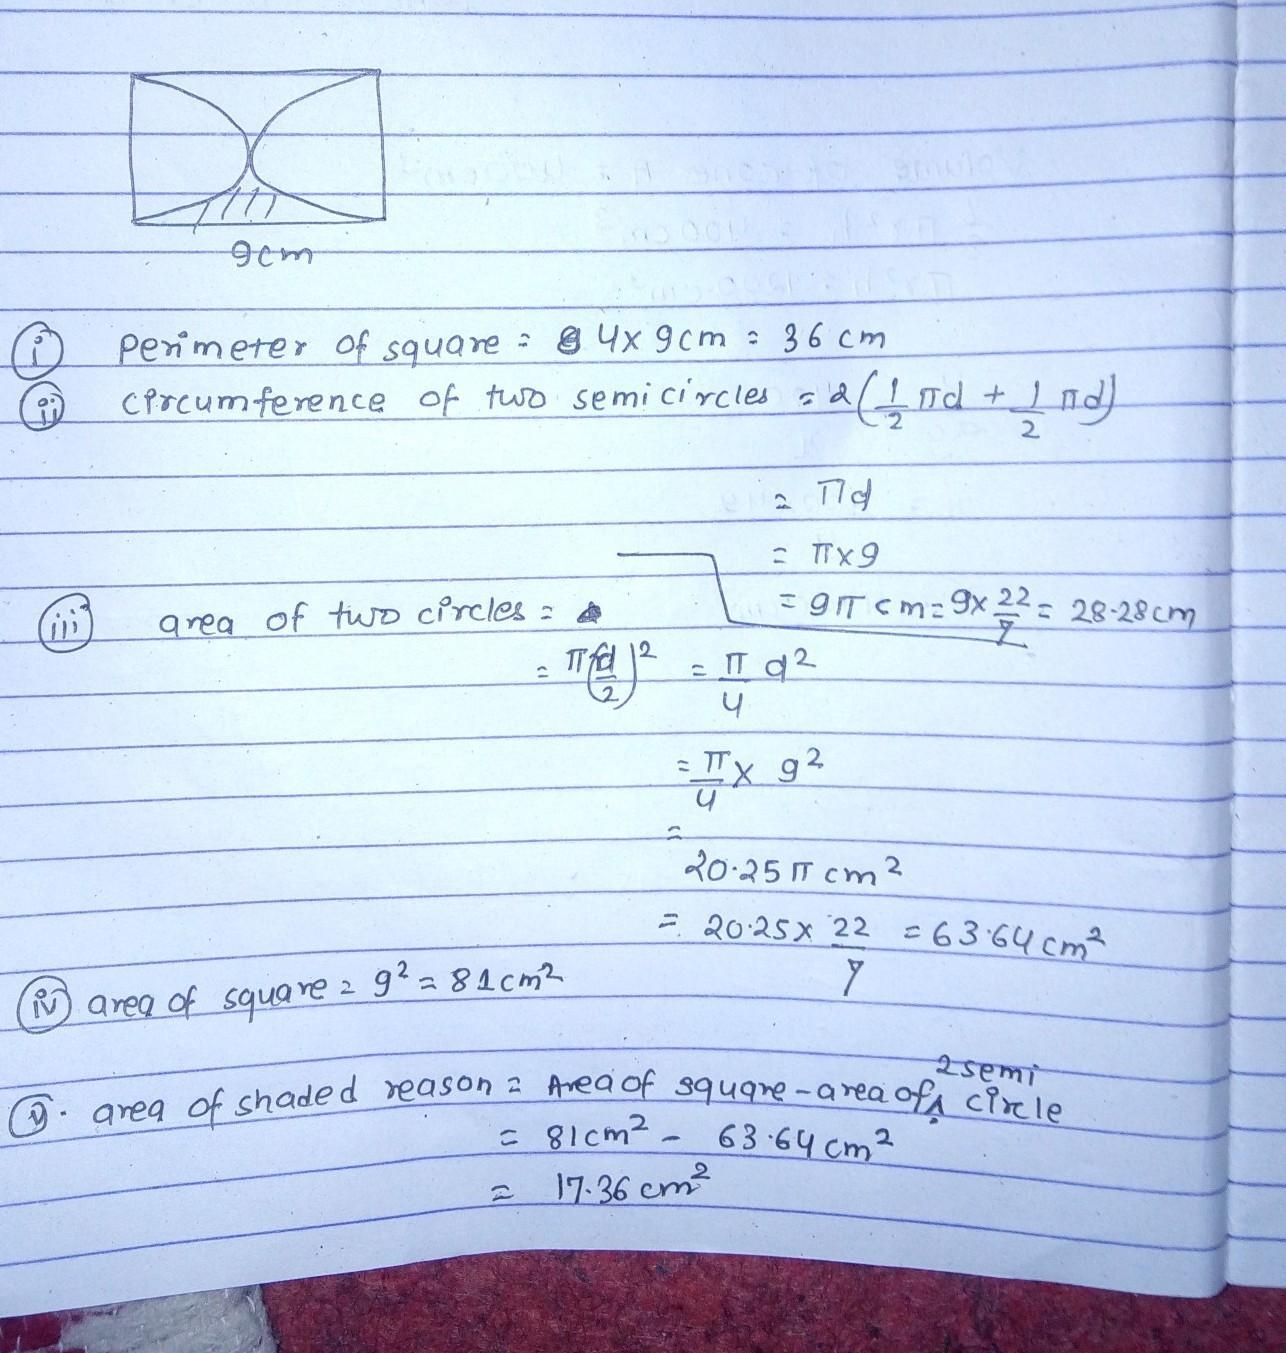 9cm
(i) perimeter of square = 4 x 9cm = 36 cm
(ii) circumference of two semicircles = 2(1/2 πd + 1/2 πd)
= πd
= π x 9
= 9π cm = 9 x 22/7 = 28.28cm
(iii) area of two circles =
= π(d/2)² = π/4 d²
= π/4 x 9²
=
20.25 π cm²
= 20.25 x 22/7 = 63.64 cm²
(iv) area of square = 9² = 81cm²
(v). area of shaded reason = Area of square - area of 2 semi circle
= 81cm² - 63.64 cm²
= 17.36 cm²